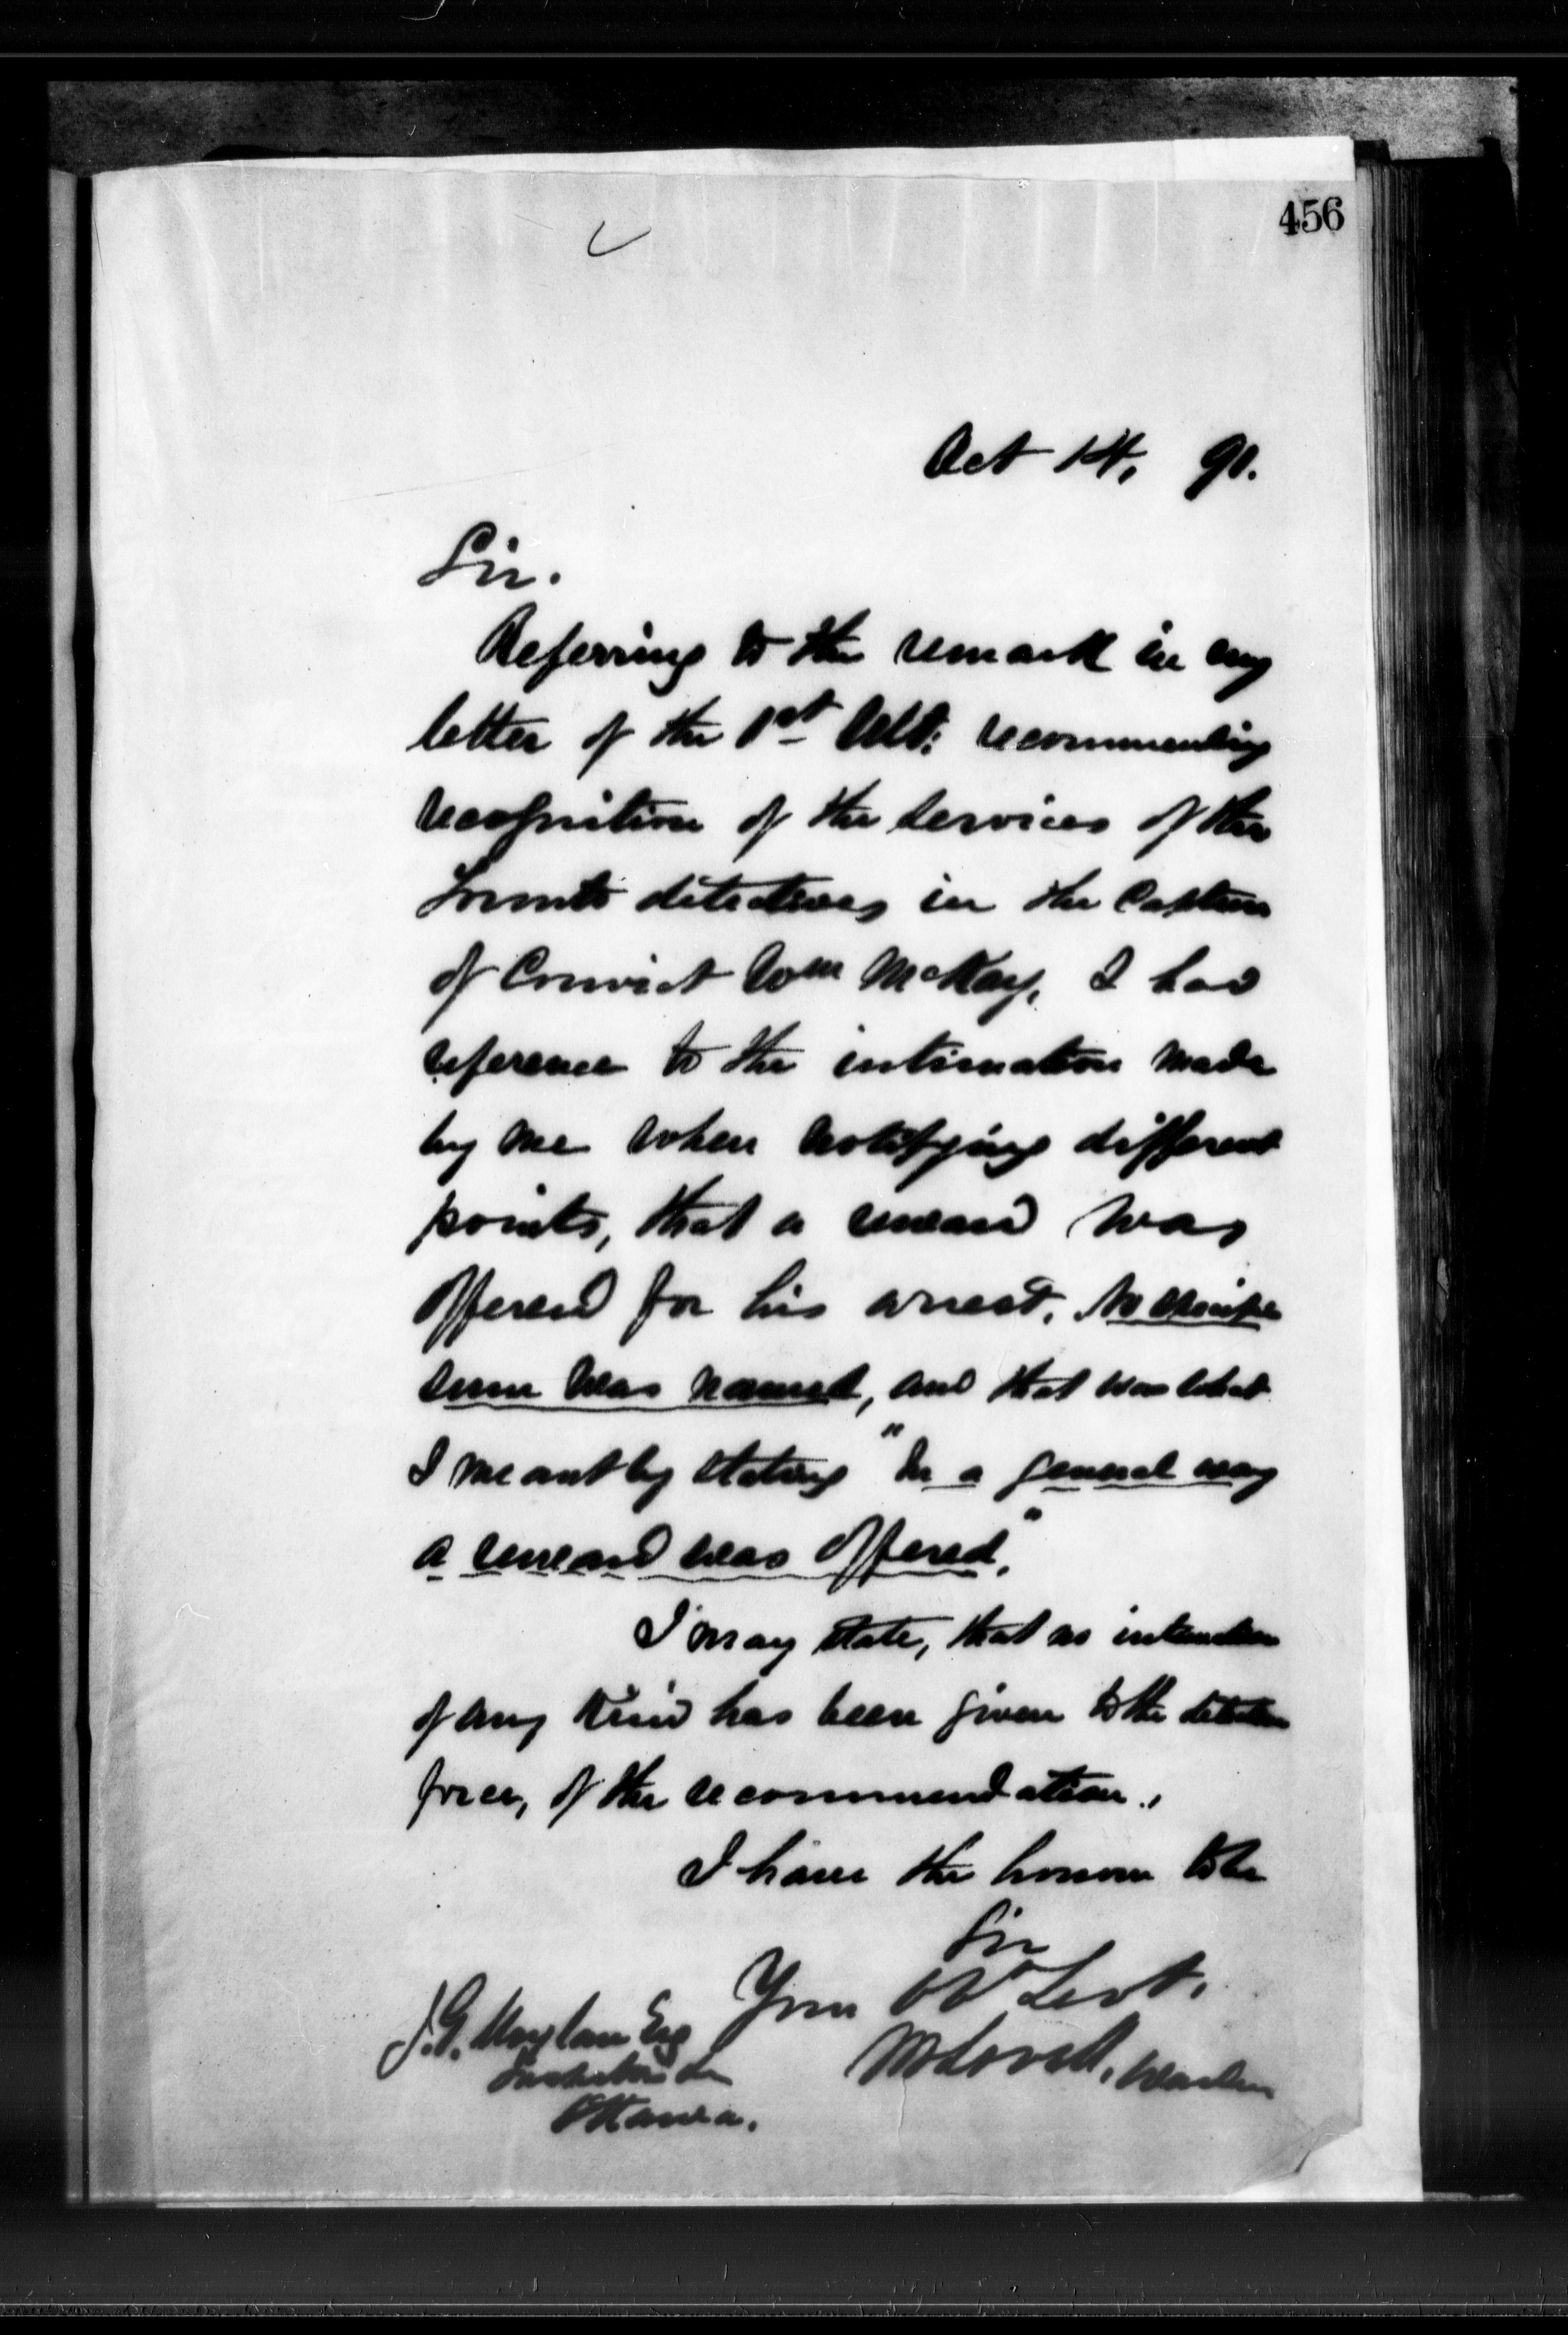 456
Oct 14, 90.
Sir.
Referring to the remark in my
letter of the 1st Ult: recommending
recognition of the services of the
Toronto detectives in the Capture
of Convict Wm McKay, I had
reference to the intimation made
by me when notifying different
points, that a reward was
offered for his arrest. No
sum was named, and that was what
I meant by stating "In a general way
a reward was offered."
I may state, that no intimation
of any kind has been given to the detective
force, of the recommendation.
I have the honour to be
Sir
Your Obt Servt.
M Lavell, Warden
J.G. Moylan Esq
Ottawa.